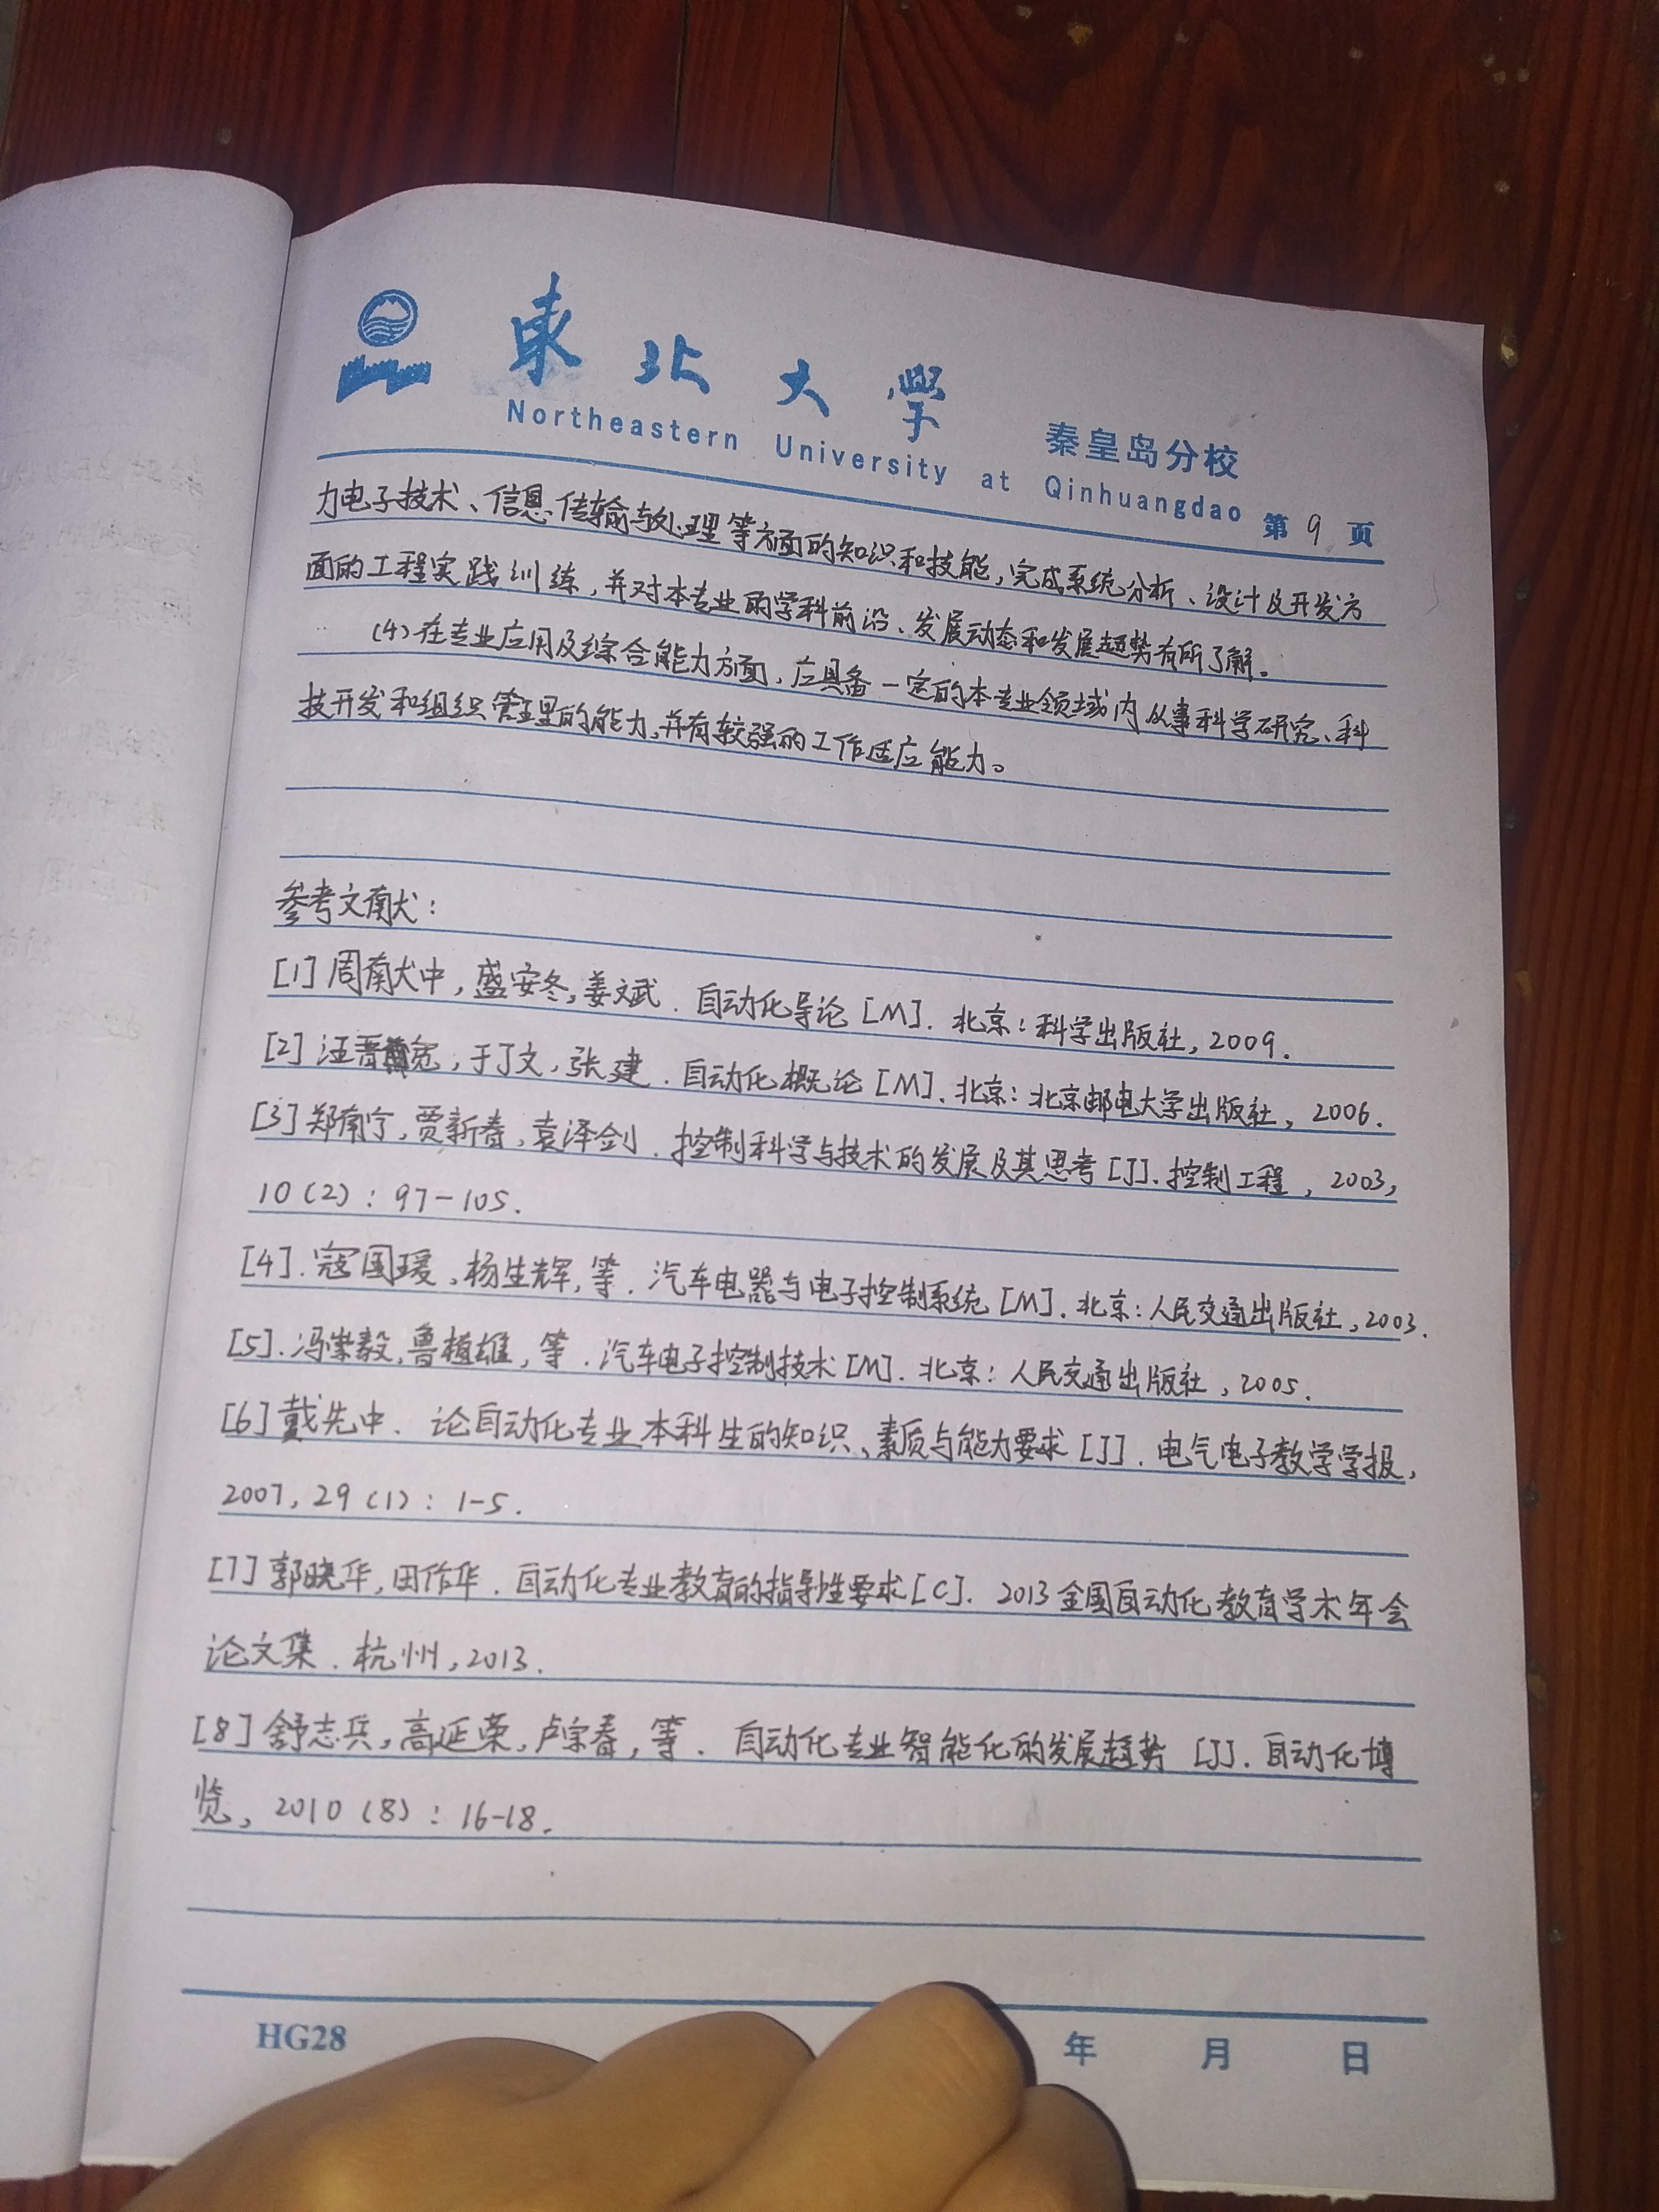 東北大學 秦皇岛分校
Northeastern University at Qinhuangdao 第 9 页
力电子技术、信息传输与处理等方面的知识和技能,完成系统分析、设计及开发方
面的工程实践训练,并对本专业的学科前沿、发展动态和发展趋势有所了解。
(4)在专业应用及综合能力方面,应具备一定的本专业领域内从事科学研究、科
技开发和组织管理的能力,并有较强的工作适应能力。
参考文献:
[1]周献中,盛安冬,姜斌.自动化导论[M].北京:科学出版社,2009.
[2]汪晋宽,于丁文,张建.自动化概论[M].北京:北京邮电大学出版社,2006.
[3]郑南宁,贾新春,袁泽剑.控制科学与技术的发展及其思考[J].控制工程,2003,
10(2):97-105.
[4].寇国瑗,杨生辉,等.汽车电器与电子控制系统[M].北京:人民交通出版社,2003.
[5].冯崇毅,鲁植雄,等.汽车电子控制技术[M].北京:人民交通出版社,2005.
[6]戴先中.论自动化专业本科生的知识、素质与能力要求[J].电气电子教学学报,
2007,29(1):1-5.
[7]郭晓华,田作华.自动化专业教育的指导性要求[C].2013全国自动化教育学术年会
论文集.杭州,2013.
[8]舒志兵,高延荣,卢宗春,等.自动化专业智能化的发展趋势[J].自动化博
览,2010(8):16-18.
HG28 年 月 日